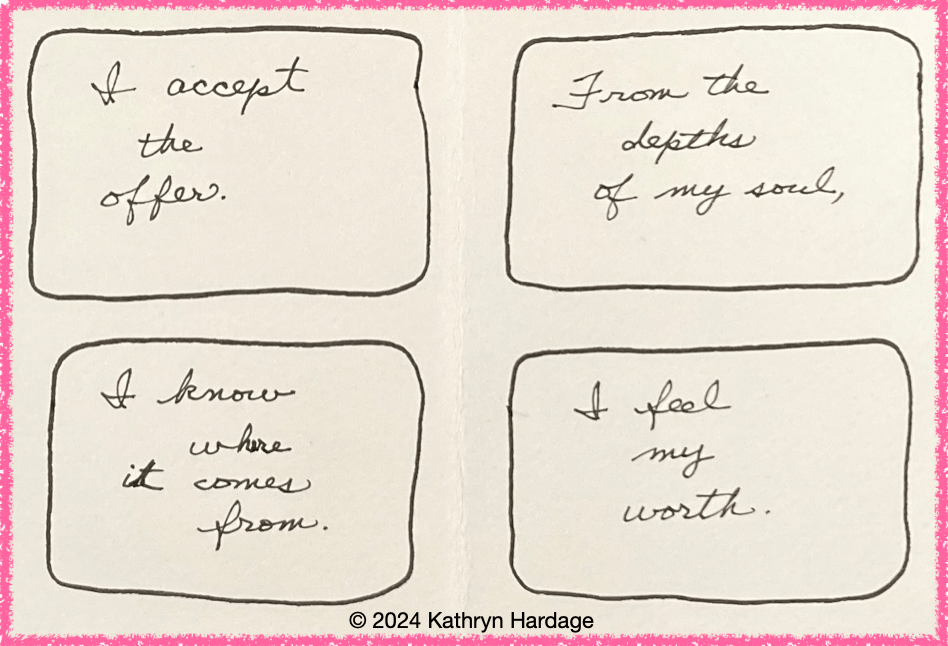 I accept
the
offer.
From the
depths
of my soul,
I know
where
it comes
from.
I feel
my
worth.
© 2024 Kathryn Hardage